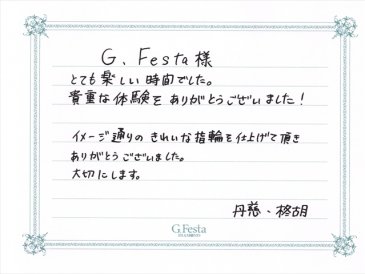 G. Festa 様
とても楽しい時間でした。
貴重な体験をありがとうございました！
イメージ通りのきれいな指輪を仕上げて頂き
ありがとうございました。
大切にします。
丹慈、柊胡
G.Festa